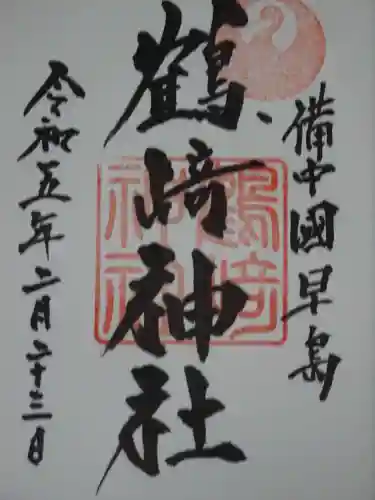 備中國早島
鶴﨑神社
令和五年二月二十三日
鶴﨑
神社